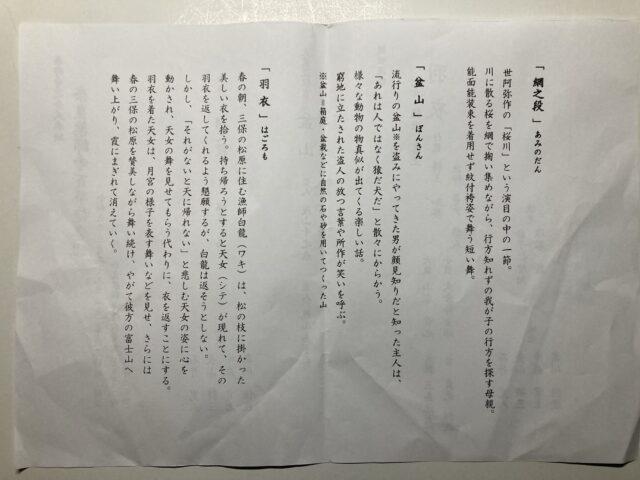 「網之段」あみのだん
世阿弥作の「桜川」という演目の中の一節。
川に散る桜を網で掬い集めながら、行方知れずの我が子の行方を探す母親。
能面能装束を着用せず紋付袴姿で舞う短い舞。
「盆山」ぼんさん
流行りの盆山※を盗みにやってきた男が顔見知りだと知った主人は、
「あれは人ではなく猿だ犬だ」と散々にからかう。
様々な動物の物真似が出てくる楽しい話。
窮地に立たされた盗人の放つ言葉や所作が笑いを呼ぶ。
※盆山＝箱庭・盆栽などに自然の石や砂を用いてつくった山
「羽衣」はごろも
春の朝、三保の松原に住む漁師白龍（ワキ）は、松の枝に掛かった
美しい衣を拾う。持ち帰ろうとすると天女（シテ）が現れて、その
羽衣を返してくれるよう懇願するが、白龍は返そうとしない。
しかし、「それがないと天に帰れない」と悲しむ天女の姿に心を
動かされ、天女の舞を見せてもらう代わりに、衣を返すことにする。
羽衣を着た天女は、月宮の様子を表す舞いなどを見せ、さらには
春の三保の松原を賛美しながら舞い続け、やがて彼方の富士山へ
舞い上がり、霞にまぎれて消えていく。